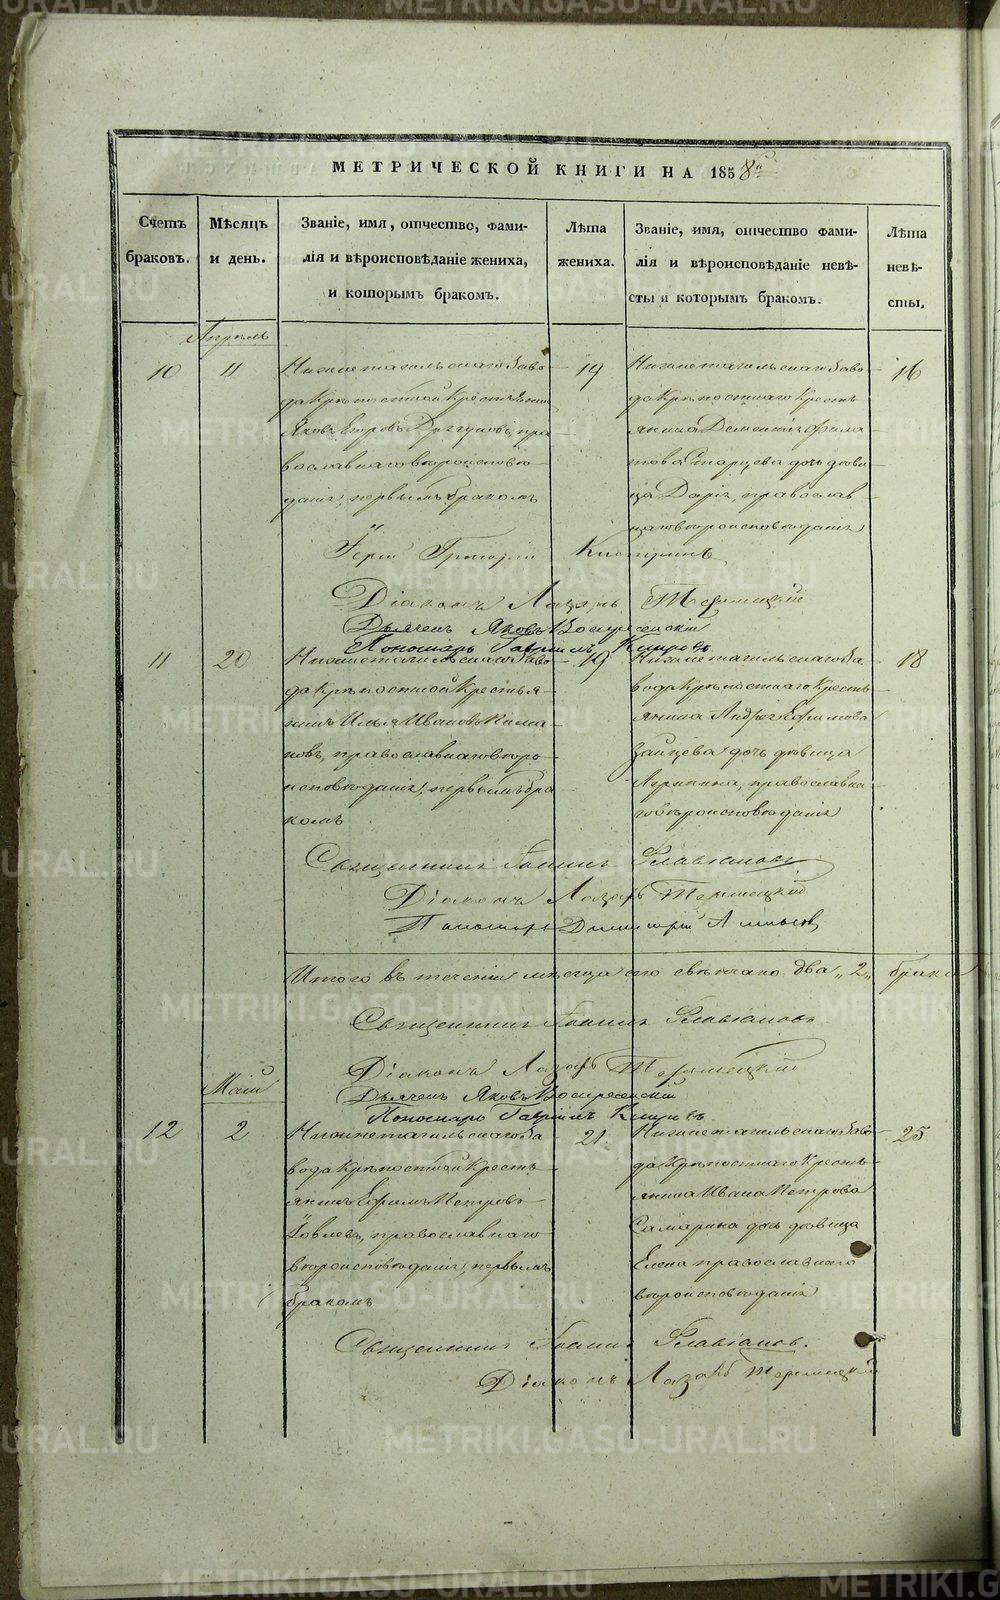 МЕТРИЧЕСКОЙ КНИГИ НА 1858
Счетъ браковъ.
Мѣсяцъ и день.
Званіе, имя, отчество, фами-
лія и вѣроисповѣданіе жениха,
и которымъ бракомъ.
Лѣта жениха.
Званіе, имя, отчество фами-
лія и вѣроисповѣданіе невѣ-
сты и которымъ бракомъ.
Лѣта невѣ-
сты.
Апрѣль
10
11
Нижнетагильскаго Заво
да Крѣпостной Крестьянинъ
Яковъ Егоровъ пра
вославнаго вѣроисповѣ
данія, первымъ бракомъ
19
Нижнетагильскаго Заво
да Крѣпостнаго Кресть
янина Дементія Фила
това Старцева дочь дѣви
ца Дарія, православ
наго вѣроисповѣданія
16
Іерей Григорій
Діаконъ Лазарь
Дьячекъ Яковъ Воскресенскій
Пономарь Гавріилъ
11
20
Нижнетагильскаго Заво
да Крѣпостной Крестья
нинъ Илья Ивановъ
православнаго вѣро
исповѣданія, первымъ бра
комъ
19
Нижнетагильскаго За
вода Крѣпостнаго Кресть
янина Андрея Ефимова
Зайцева дочь дѣвица
православна
го вѣроисповѣданія
18
Священникъ Іоаннъ Флавіановъ
Діаконъ Лазарь
Пономарь Димитрій
Итого въ теченіи мѣсяца сего свѣнчано два „2„ брака
Священникъ Іоаннъ Флавіановъ
Діаконъ Лазарь
Дьячекъ Яковъ Воскресенскій
Пономарь Гавріилъ
Май
12
2
Нижнетагильскаго За
вода Крѣпостной Кресть
янинъ Ефимъ Петровъ
православнаго
вѣроисповѣданія, первымъ
бракомъ
21.
Нижнетагильскаго Заво
да Крѣпостнаго Кресть
янина Ивана Петрова
Самарина дочь дѣвица
Елена православнаго
вѣроисповѣданія
25
Священникъ Іоаннъ Флавіановъ.
Діаконъ Лазарь
METRIKI.GASO-URAL.RU